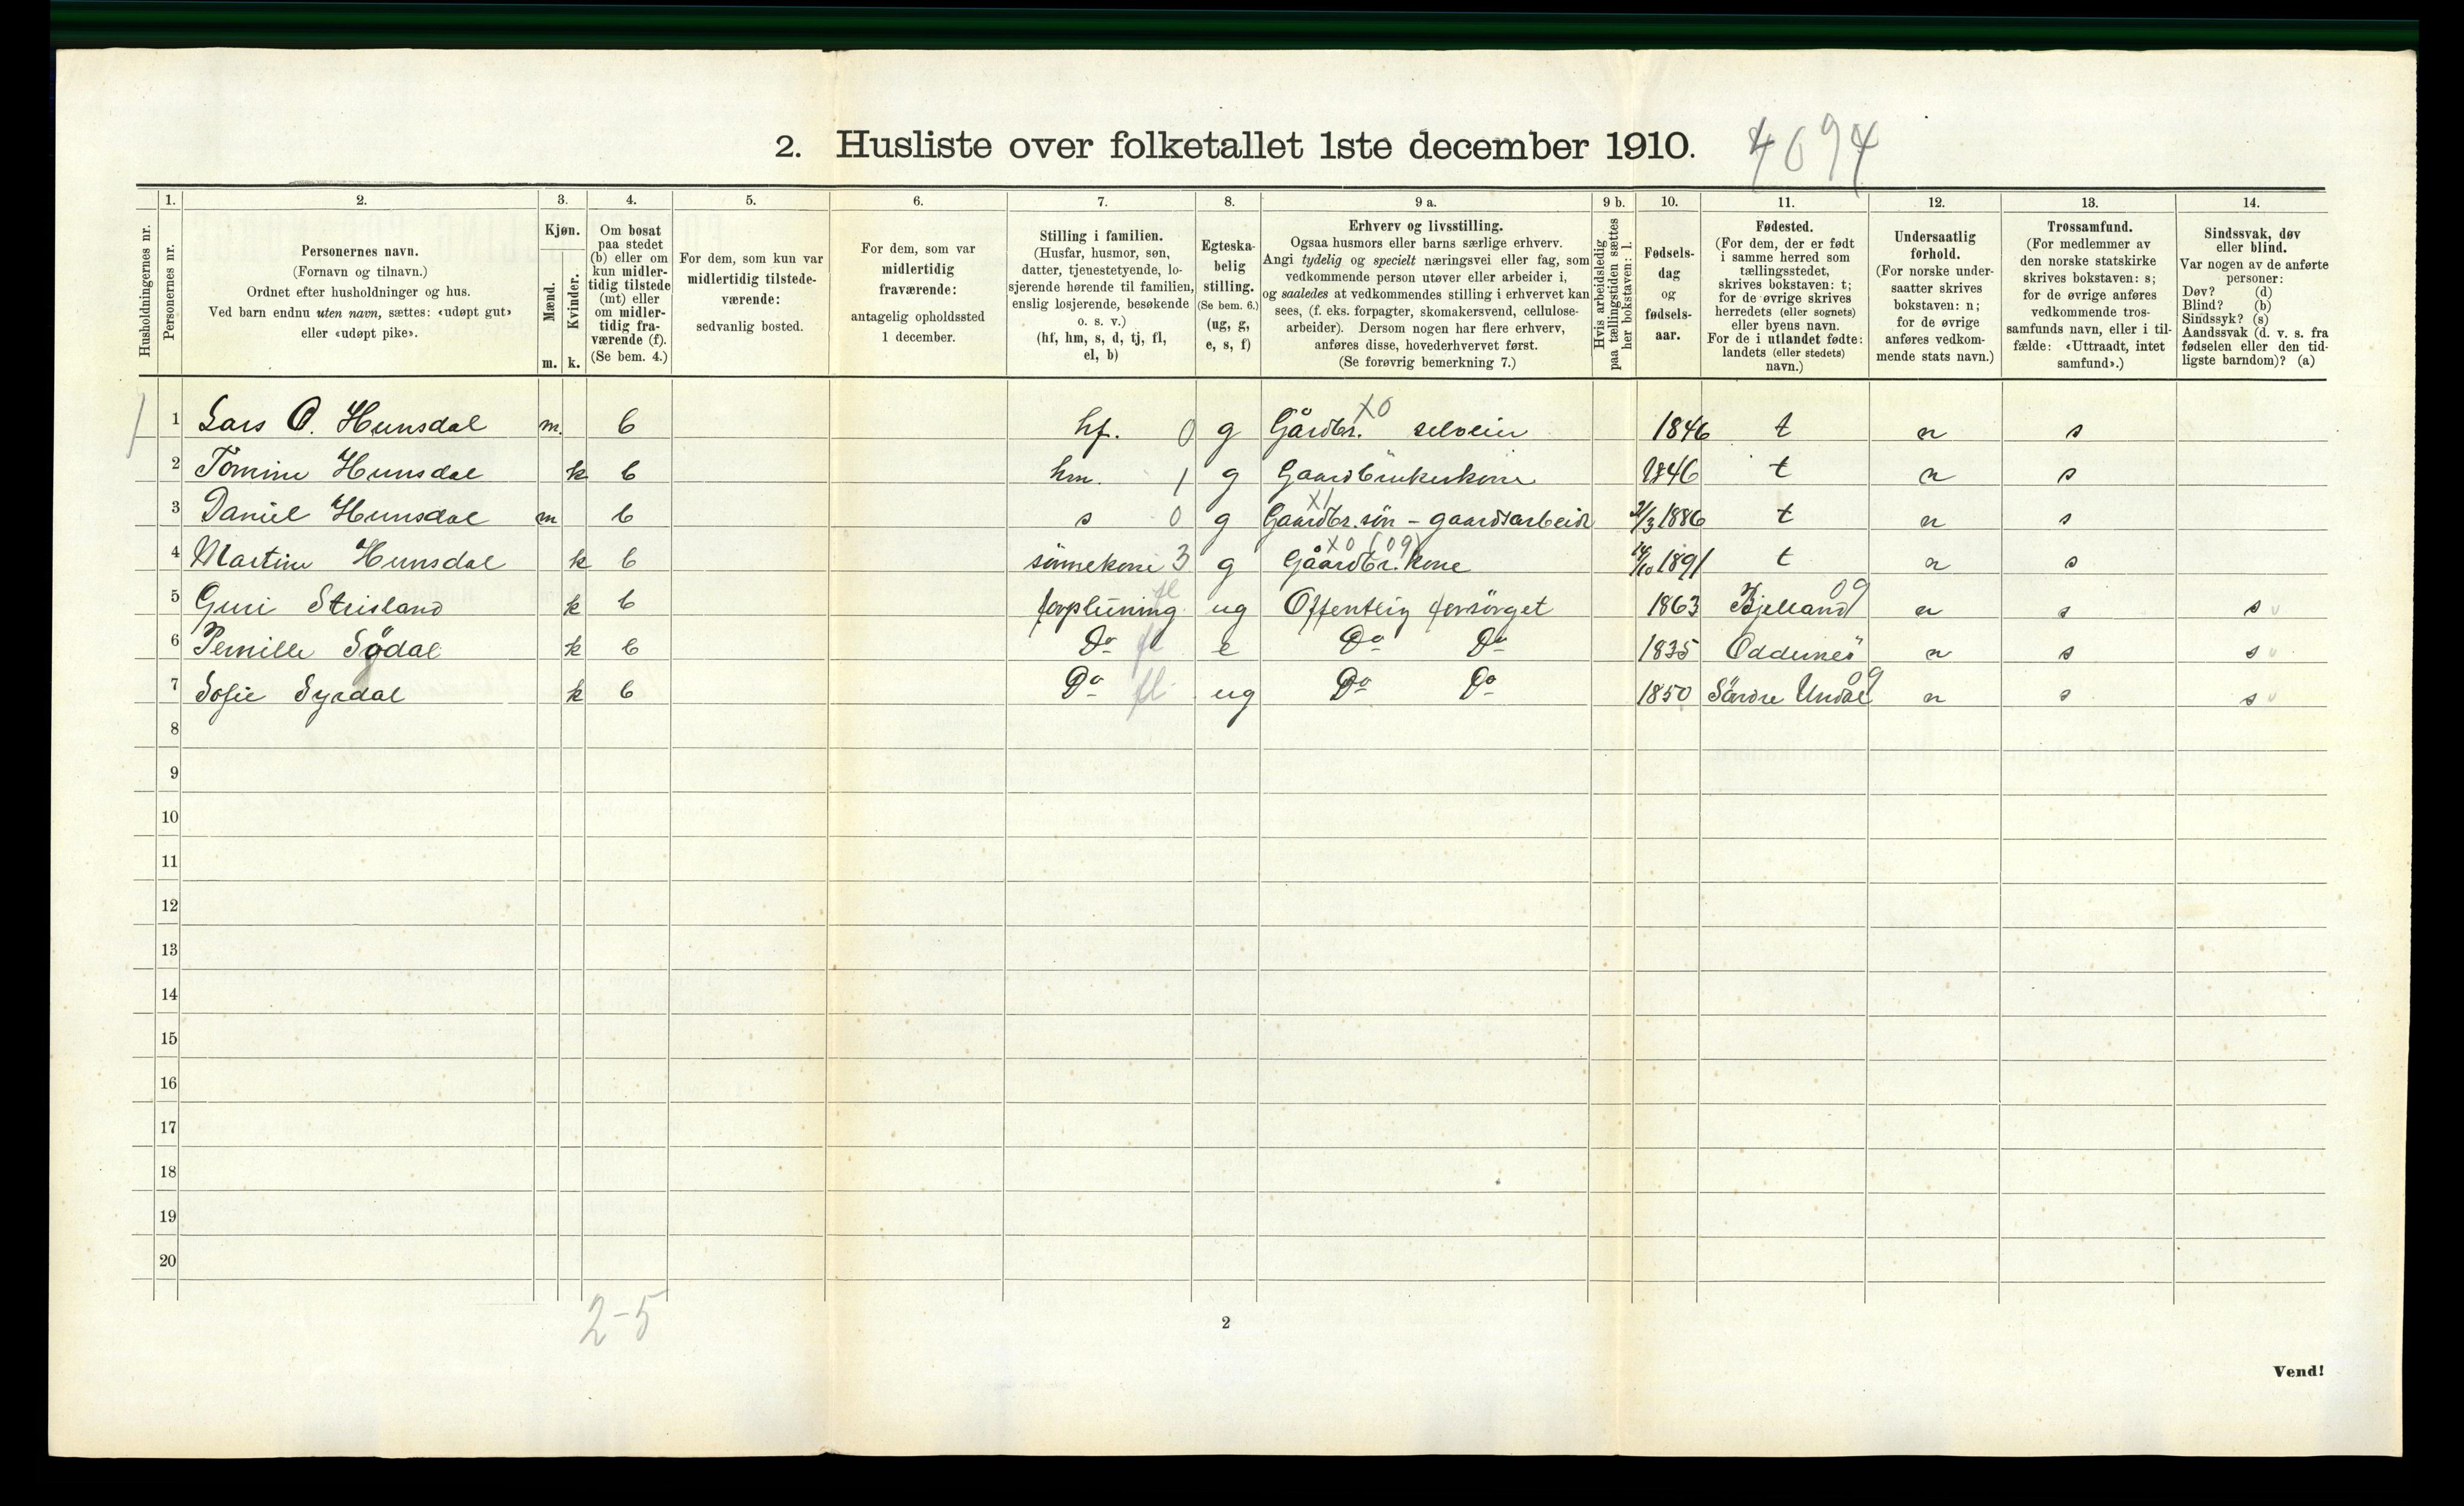 2. Husliste over folketallet 1ste december 1910. 4094
Husholdningernes nr.
1.
Personernes nr.
2.
Personernes navn.
(Fornavn og tilnavn.)
Ordnet efter husholdninger og hus.
Ved barn endnu uten navn, sættes: «udøpt gut»
eller «udøpt pike».
3.
Kjøn.
Mænd.
Kvinder.
m. k.
4.
Om bosat
paa stedet
(b) eller om
kun midler-
tidig tilstede
(mt) eller
om midler-
tidig fra-
værende (f).
(Se bem. 4.)
5.
For dem, som kun var
midlertidig tilstede-
værende:
sedvanlig bosted.
6.
For dem, som var
midlertidig
fraværende:
antagelig opholdssted
1 december.
7.
Stilling i familien.
(Husfar, husmor, søn,
datter, tjenestetyende, lo-
sjerende hørende til familien,
enslig losjerende, besøkende
o. s. v.)
(hf, hm, s, d, tj, fl,
el, b)
8.
Egteska-
belig
stilling.
(Se bem. 6.)
(ug, g,
e, s, f)
9 a.
Erhverv og livsstilling.
Ogsaa husmors eller barns særlige erhverv.
Angi tydelig og specielt næringsvei eller fag, som
vedkommende person utøver eller arbeider i,
og saaledes at vedkommendes stilling i erhvervet kan
sees, (f. eks. forpagter, skomakersvend, cellulose-
arbeider). Dersom nogen har flere erhverv,
anføres disse, hovederhvervet først.
(Se forøvrig bemerkning 7.)
9 b.
Hvis arbeidsledig
paa tællingstiden sættes
her bokstaven: l.
10.
Fødsels-
dag
og
fødsels-
aar.
11.
Fødested.
(For dem, der er født
i samme herred som
tællingsstedet,
skrives bokstaven: t;
for de øvrige skrives
herredets (eller sognets)
eller byens navn.
For de i utlandet fødte:
landets (eller stedets)
navn.)
12.
Undersaatlig
forhold.
(For norske under-
saatter skrives
bokstaven: n;
for de øvrige
anføres vedkom-
mende stats navn.)
13.
Trossamfund.
(For medlemmer av
den norske statskirke
skrives bokstaven: s;
for de øvrige anføres
vedkommende tros-
samfunds navn, eller i til-
fælde: «Uttraadt, intet
samfund».)
14.
Sindssvak, døv
eller blind.
Var nogen av de anførte
personer:
Døv? (d)
Blind? (b)
Sindssyk? (s)
Aandssvak (d. v. s. fra
fødselen eller den tid-
ligste barndom)? (a)
1 1 Lars O. Hunsdal m. b hf. 0 g Gårdbr. X0 selveier 1846 t n s
2 Tomine Hunsdal k b hm. 1 g Gaardbrukerkone 1846 t n s
3 Daniel Hunsdal m b s 0 g X1 Gaardbr. søn - gaardsarbeid 21/3 1886 t n s
4 Martine Hunsdal k b sønnekone 3 g X0 (09) Gåardbr. kone 14/10 1891 t n s
5 Guri Strisland k b forpleining fl ug Offentlig forsörget 1863 Bjelland 09 n s s
6 Pernille Sødal k b Do fl e Do Do 1835 Oddernes n s s
7 Sofie Syrdal k b Do fl ug Do Do 1850 Söndre Undal 09 n s s
8
9
10
11
12
13
14
15
16
17
18
19
20
2-5
2
Vend!